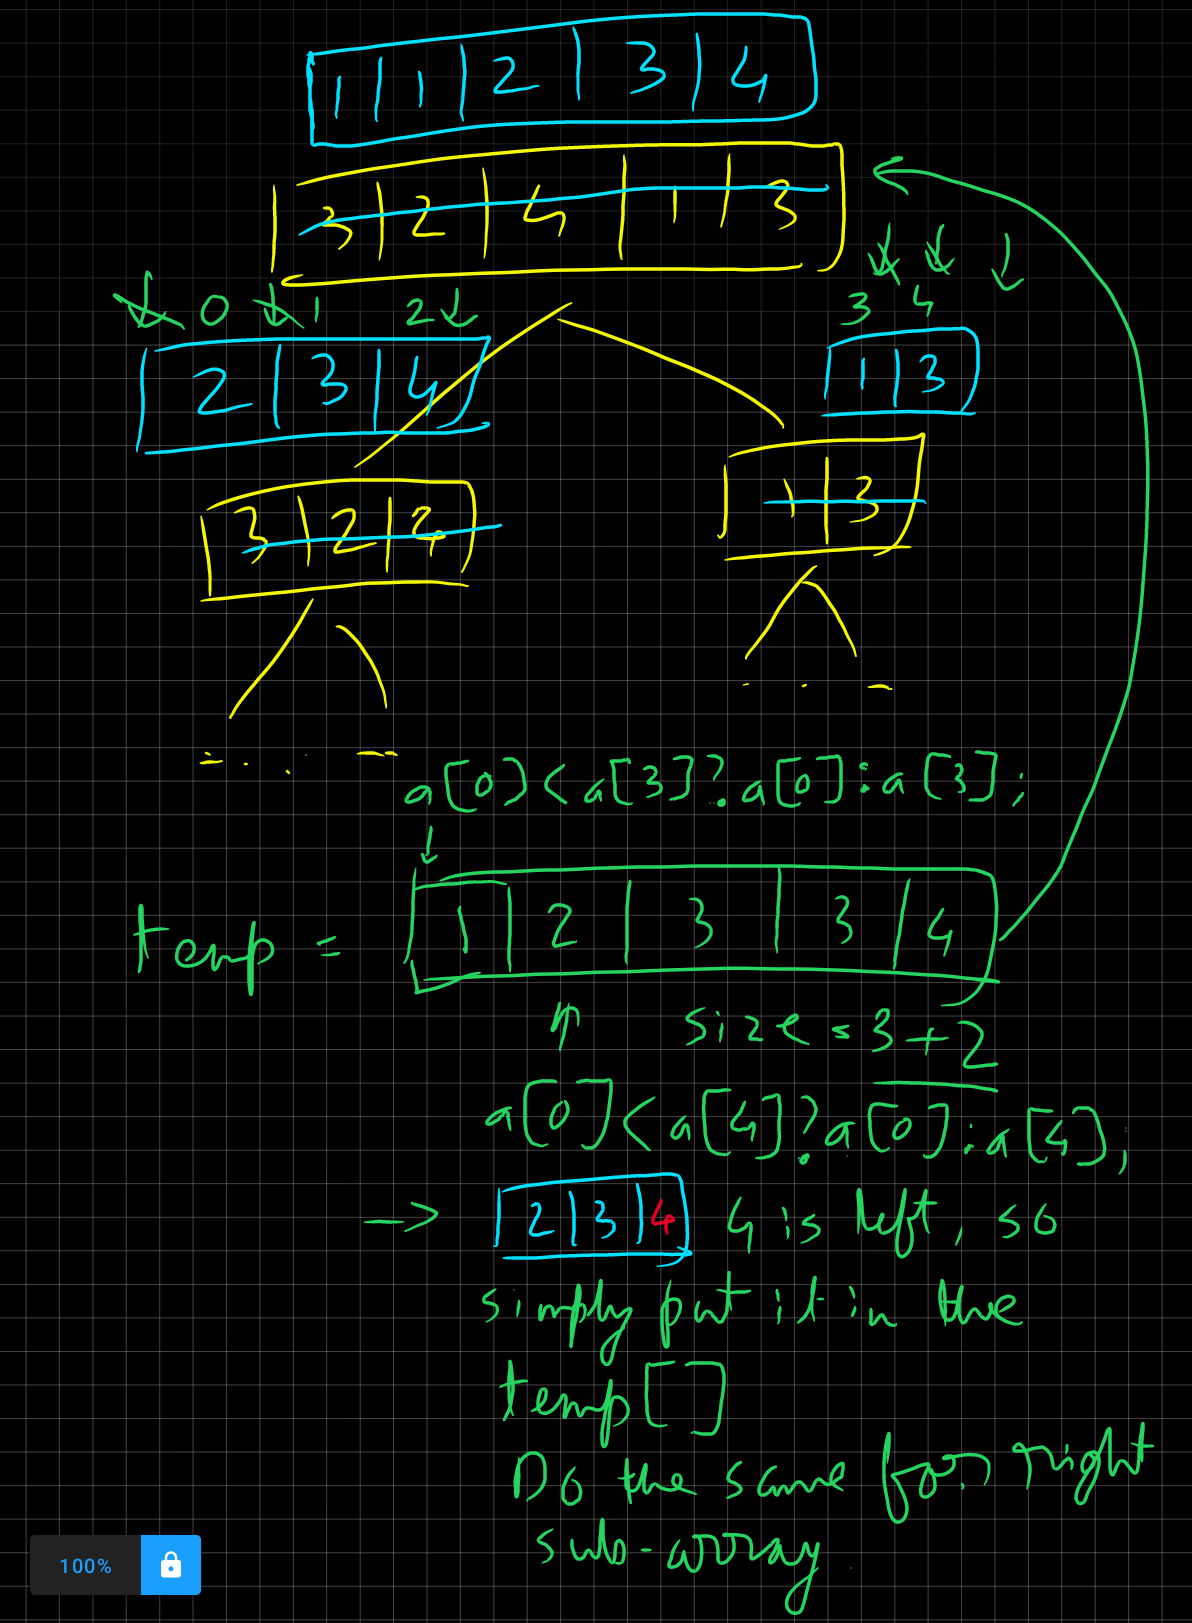 1 | 1 | 2 | 3 | 4
3 | 2 | 4 | 1 | 3
0 1 2
3 4
2 | 3 | 4
1 | 3
3 | 2 | 4
1 | 3
a[0] < a[3] ? a[0] : a[3];
temp = 1 | 2 | 3 | 3 | 4
size = 3+2
a[0] < a[4] ? a[0] : a[4];
-> 2 | 3 | 4 4 is left, so
simply put it in the
temp[]
Do the same for right
sub-array
100%